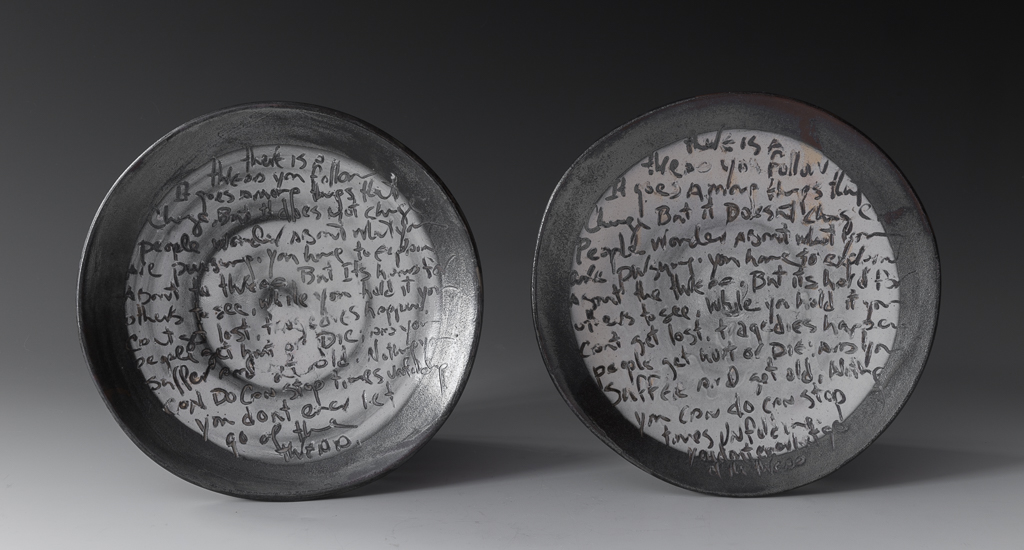 there is a
threads you follow
It goes among things that
change But it does not change
people wonder about what
are pursuing you have to explain
about the thread But its hard for
others to see while you hold it you
cant get lost tragedies happen
people get hurt or DIE and you
suffer and get old Nothing you
can DO can stop times unfolding
you dont ever let
go of the
thread
there is a
thread you follow
It goes Among things that
change But it Doesnt change
people wonder About what
are pursuing you have to explain
about the thread But its hard for
others to see while you hold it you
cant get lost tragedies happen
people get hurt or DIE: and you
suffer and get old, Nothing
you can do can stop
times unfolding
you dont ever let go
of the thread